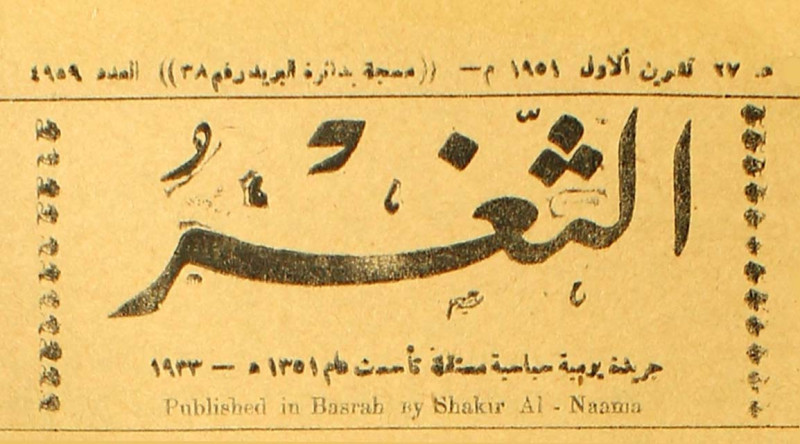 هـ ٢٧ تشرين الاول ١٩٥١ م — ((مسجلة بدائرة البريد رقم ٣٨)) العدد ٤٩٥٩
الثَّغْرُ
جريدة يومية سياسية مستقلة تأسست عام ١٣٥١ هـ — ١٩٣٣
Published in Basrah By Shakir Al - Naama